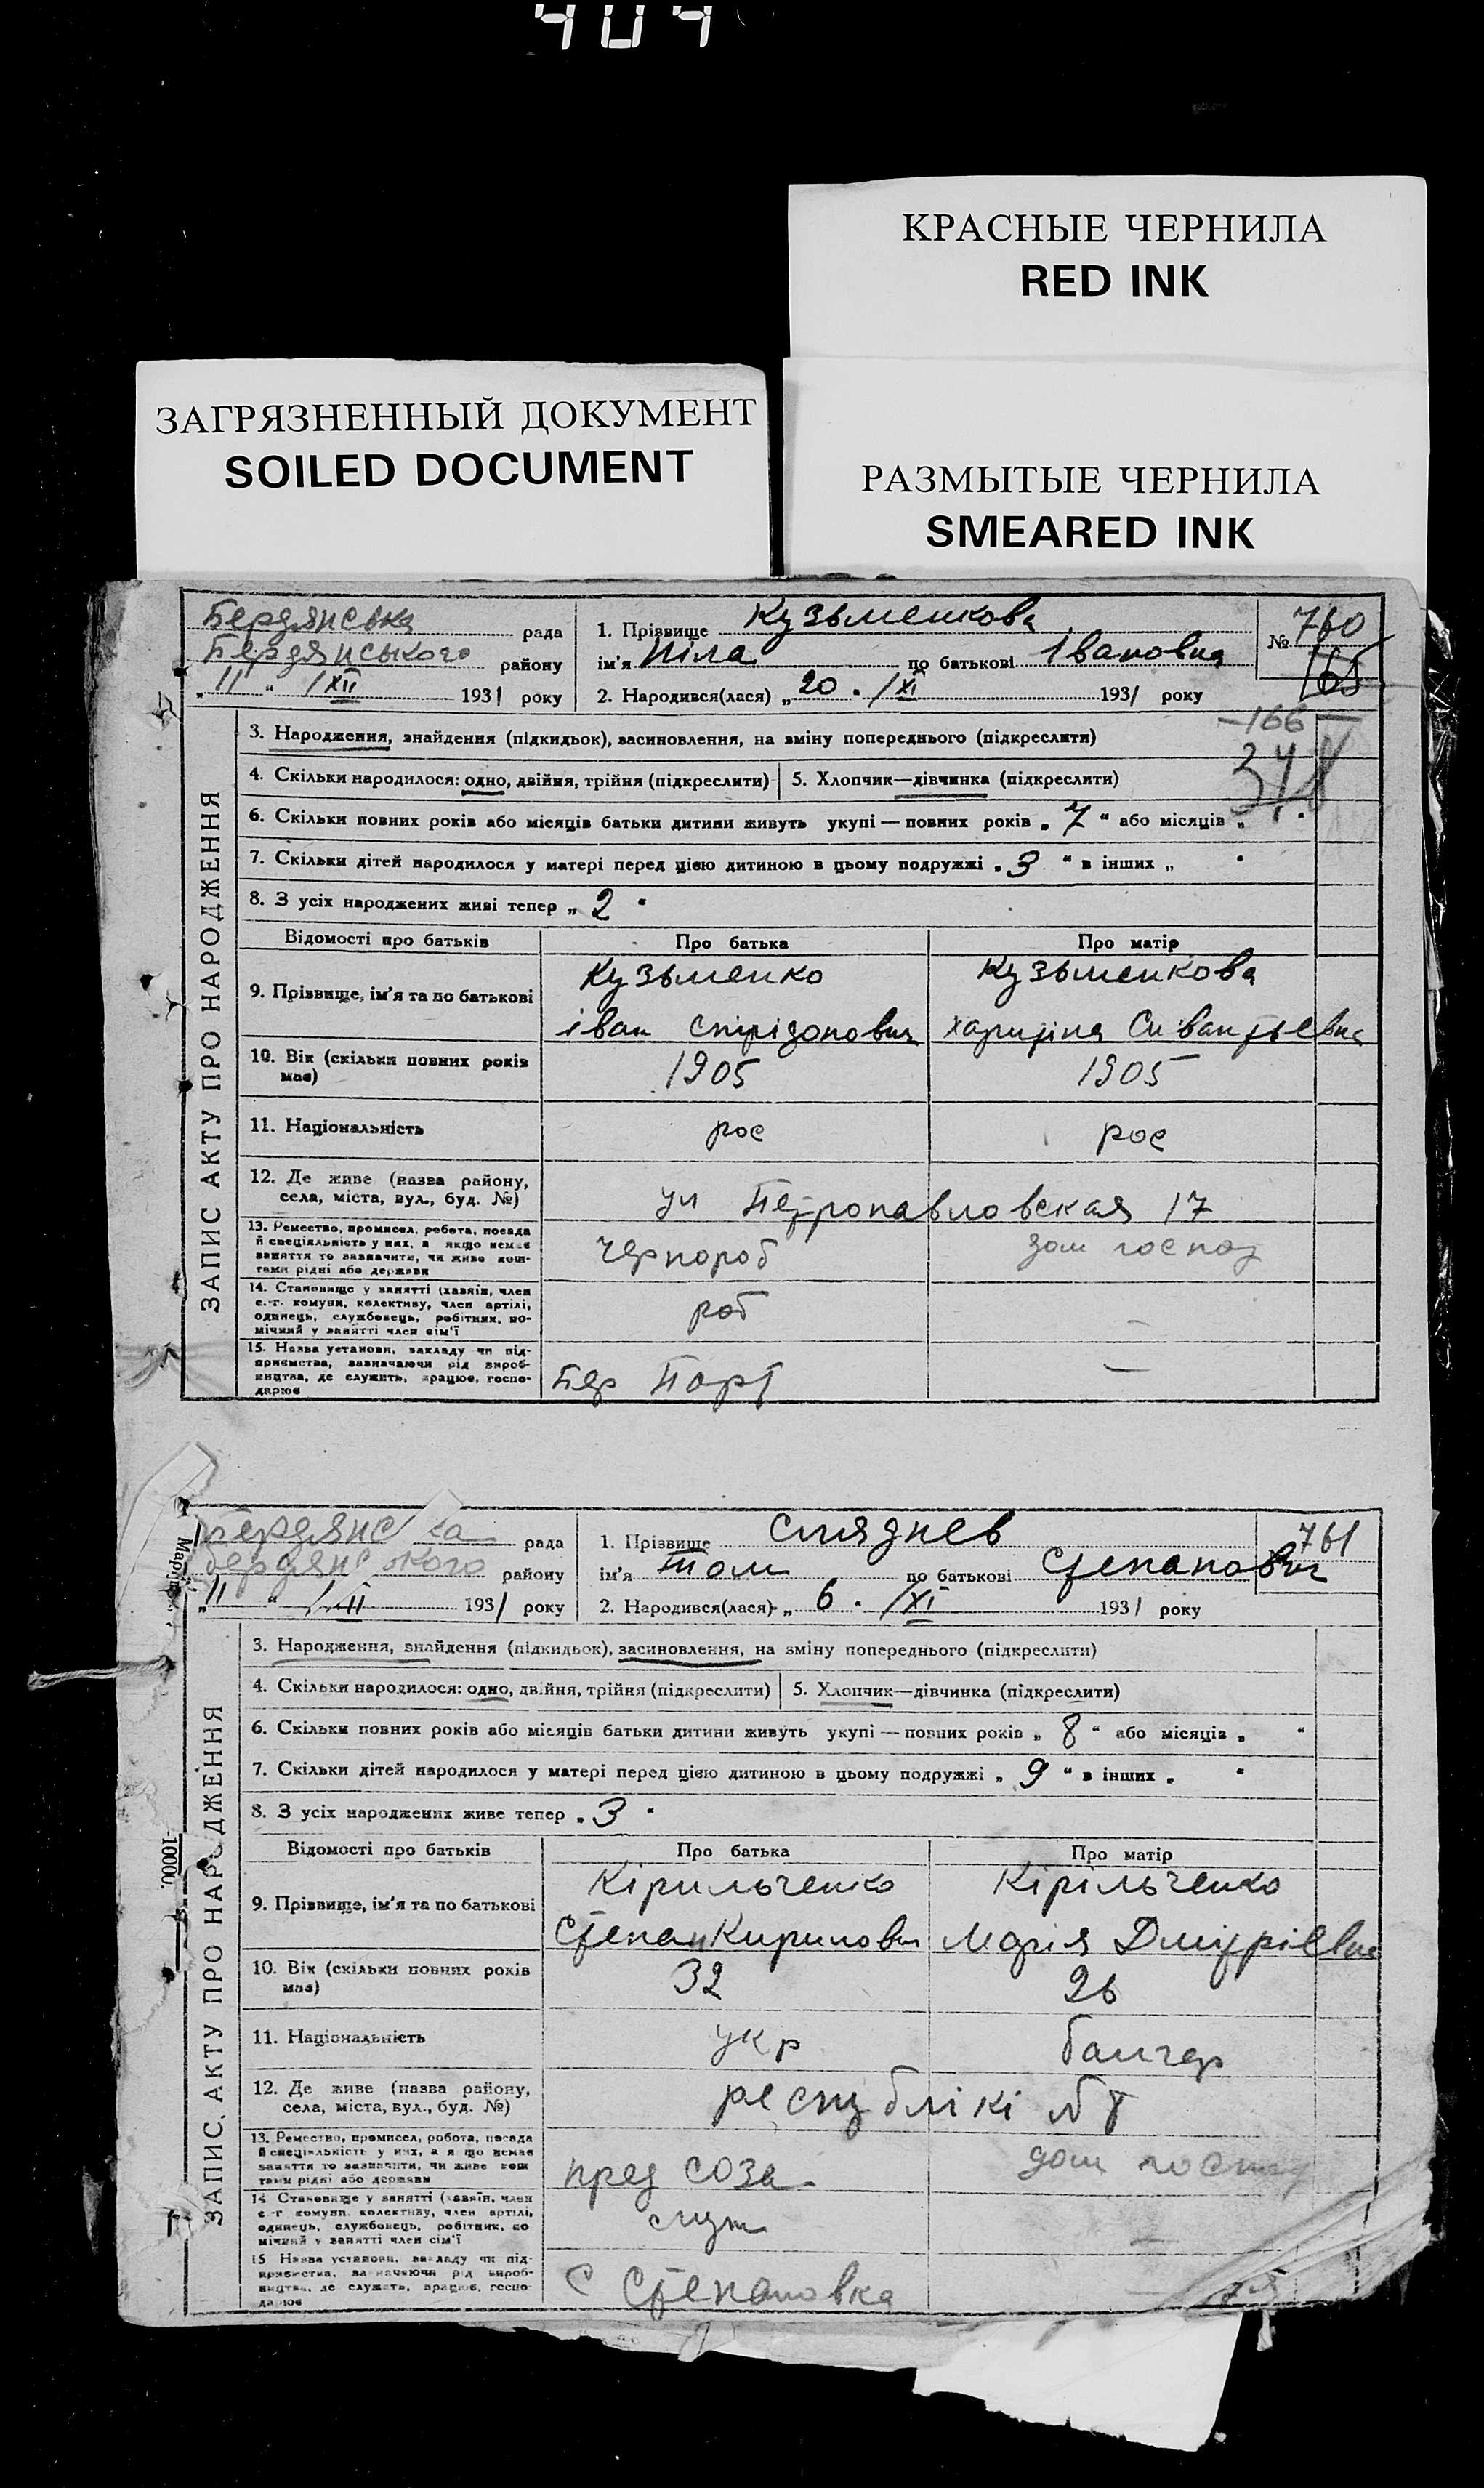 404
КРАСНЫЕ ЧЕРНИЛА
RED INK
ЗАГРЯЗНЕННЫЙ ДОКУМЕНТ
SOILED DOCUMENT
РАЗМЫТЫЕ ЧЕРНИЛА
SMEARED INK
Бердянська рада
Бердянського району
„11“ /XII 1931 року
1. Прізвище Кузьменкова
ім'я Ніла по батькові Івановна
2. Народився(лася) „20. /XI 1931 року
№ 760
165
—166—
348
ЗАПИС АКТУ ПРО НАРОДЖЕННЯ
3. Народження, знайдення (підкидьок), засиновлення, на зміну попереднього (підкреслити)
4. Скільки народилося: одно, двійня, трійня (підкреслити) 5. Хлопчик—дівчинка (підкреслити)
6. Скільки повних років або місяців батьки дитини живуть укупі — повних років „7“ або місяців „
7. Скільки дітей народилося у матері перед цією дитиною в цьому подружжі „3“ в інших „ “
8. З усіх народжених живі тепер „2“
Відомості про батьків Про батька Про матір
9. Прізвище, ім'я та по батькові
Кузьменко Кузьменкова
іван спірідонович
10. Вік (скільки повних років має) 1905 1905
11. Національність рос рос
12. Де живе (назва району, села, міста, вул., буд. №) ул Петропавловская 17
13. Ремество, промисел, робота, посада
й спеціяльність у них, а якщо немає
заняття то зазначити, чи живе кош-
тами рідні або держави
чернороб дом господ
14. Становище у занятті (хазяїн, член
с.-г. комуни, колективу, член артілі,
одинець, службовець, робітник, по-
мічний у занятті член сім'ї
роб —
15. Назва установи, закладу чи під-
приємства, зазначаючи рід вироб-
ництва, де служить, працює, госпо-
дарює
Бер Порт —
Бердянс ка рада
бердянс ького району
„11“ /XII 1931 року
1. Прізвище Сляднев
ім'я Том по батькові Степанович
2. Народився(лася) „6. /XI 1931 року
761
10000.
ЗАПИС АКТУ ПРО НАРОДЖЕННЯ
3. Народження, знайдення (підкидьок), засиновлення, на зміну попереднього (підкреслити)
4. Скільки народилося: одно, двійня, трійня (підкреслити) 5. Хлопчик—дівчинка (підкреслити)
6. Скільки повних років або місяців батьки дитини живуть укупі — повних років „8“ або місяців „ “
7. Скільки дітей народилося у матері перед цією дитиною в цьому подружжі „9“ в інших „ “
8. З усіх народжених живе тепер „3“
Відомості про батьків Про батька Про матір
9. Прізвище, ім'я та по батькові
Кірильченко Кірільченко
Степан Кирилович Марія Дмітріевна
10. Вік (скільки повних років має) 32 26
11. Національність укр болгар
12. Де живе (назва району, села, міста, вул., буд. №) республікі № 8
13. Ремество, промисел, робота, посада
й спеціяльність у них, а якщо немає
заняття то зазначити, чи живе кош-
тами рідні або держави
пред соза дом господ
14. Становище у занятті (хазяїн, член
с.-г. комуни, колективу, член артілі,
одинець, службовець, робітник, по-
мічний у занятті член сім'ї
служ —
15. Назва установи, закладу чи під-
приємства, зазначаючи рід вироб-
ництва, де служить, працює, госпо-
дарює
С Степановка